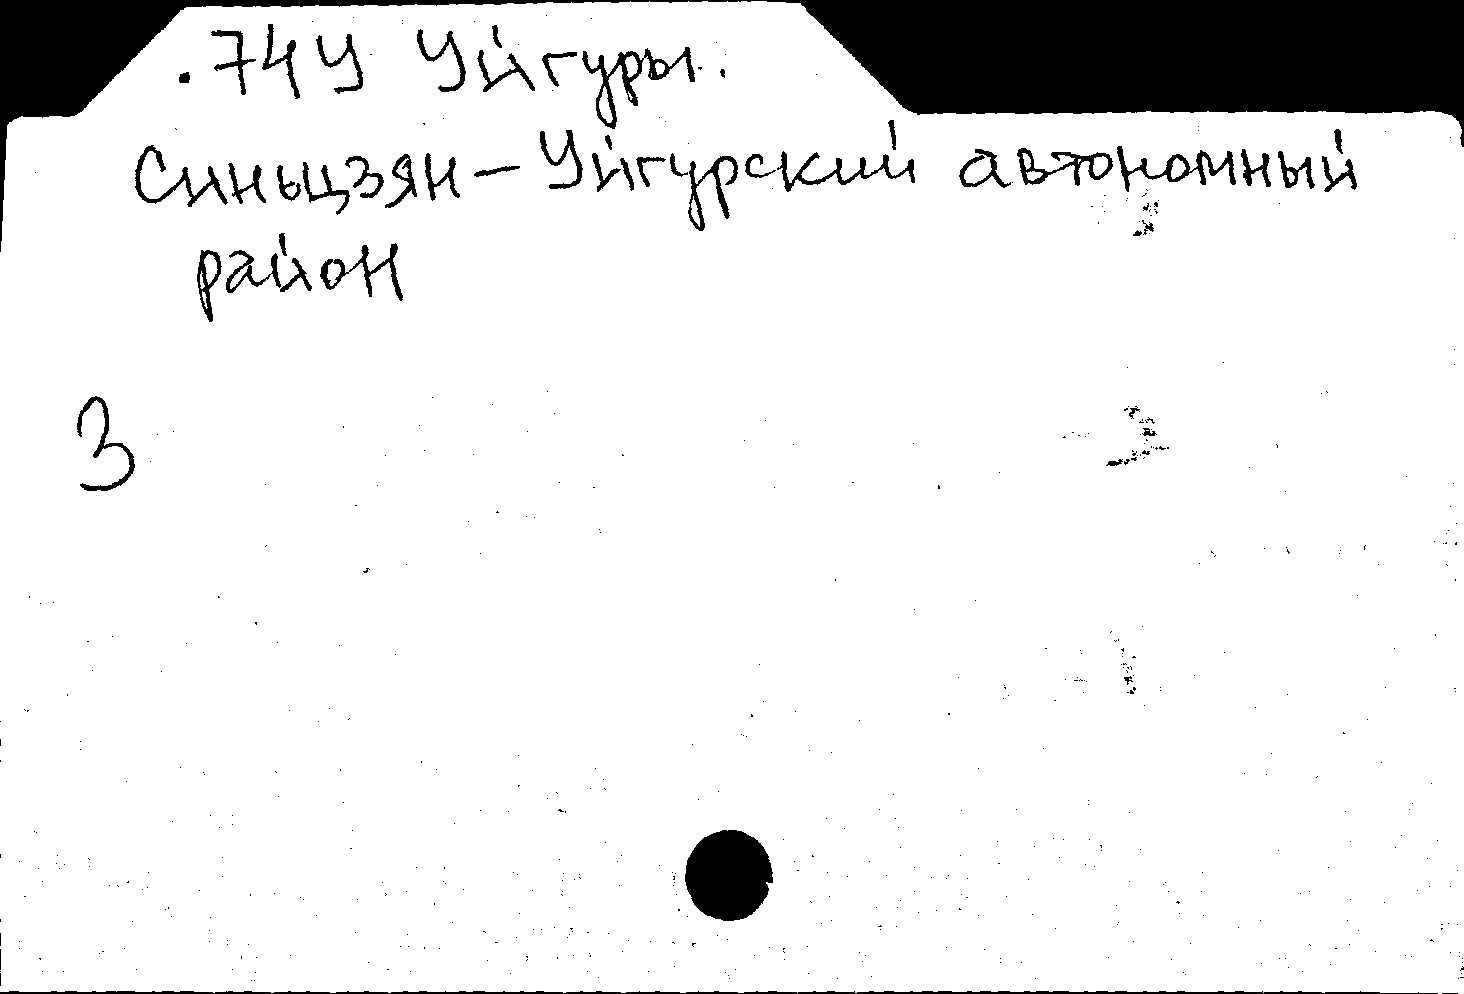 .74У Уйгуры.
Синьцзян-Уйгурский автономный
район
3